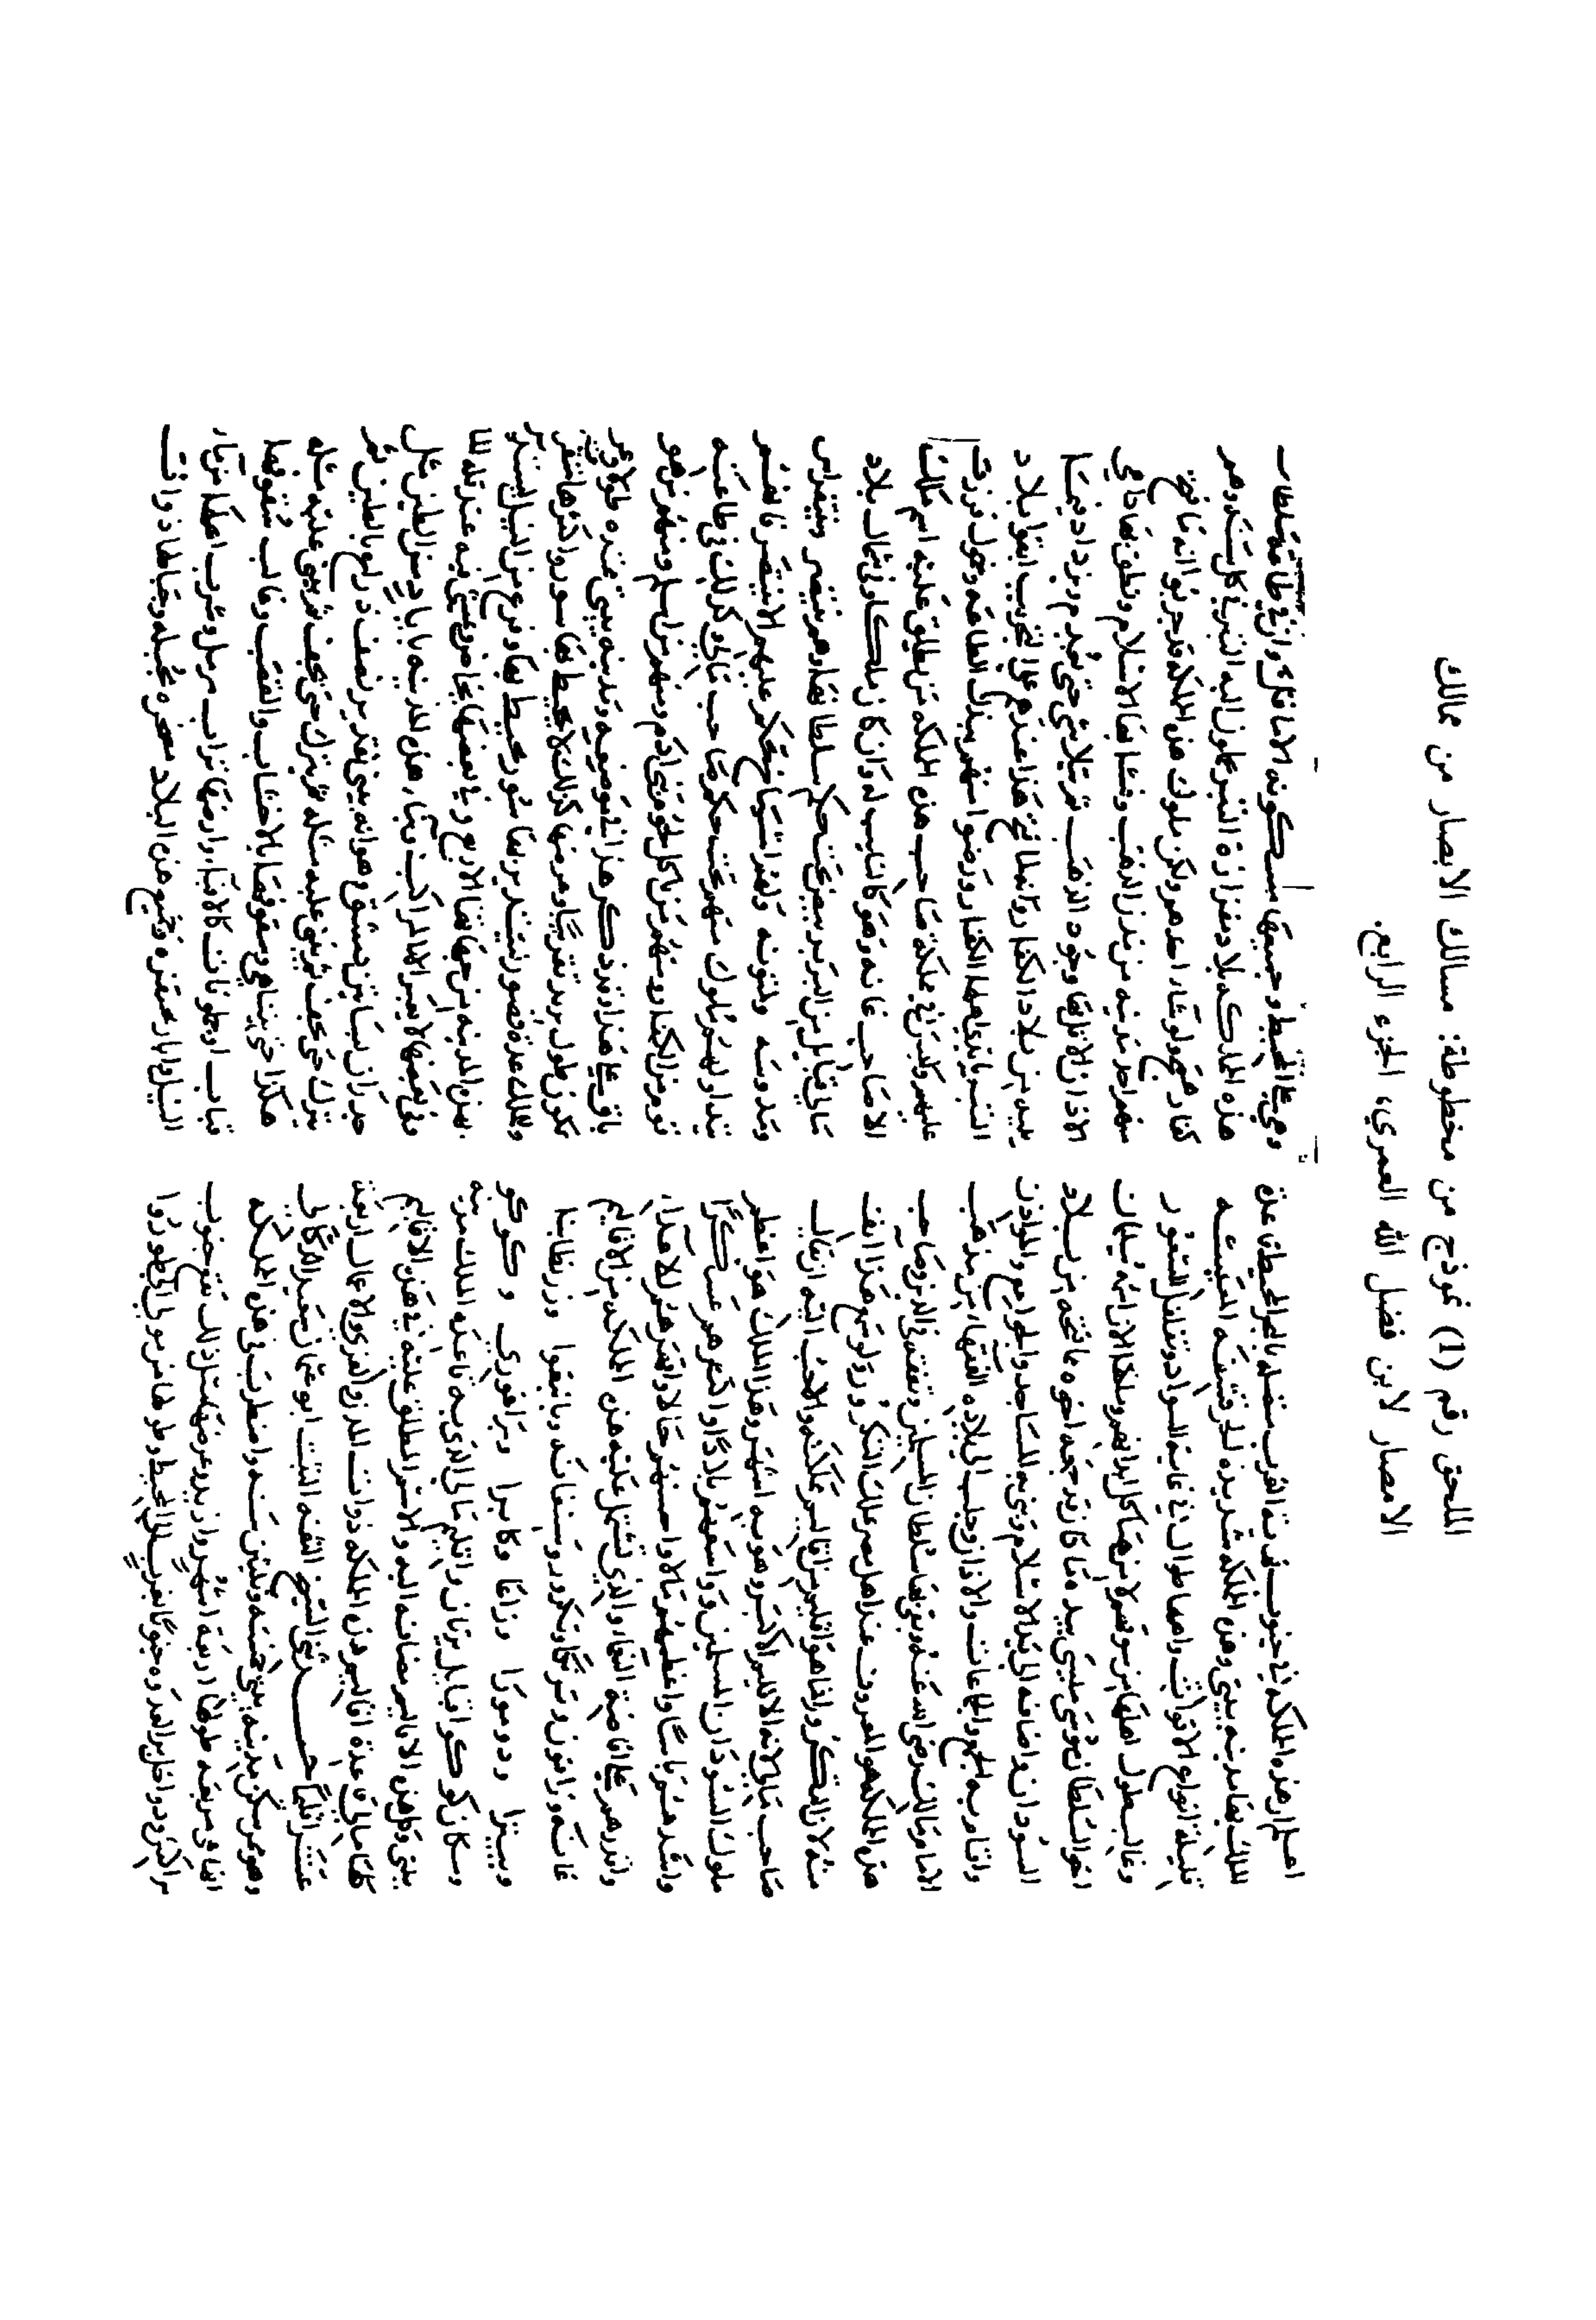 الملحق رقم (1) نموذج من مخطوطة: مسالك الابصار من ممالك
الامصار لابن فضل الله العمري، الجزء الرابع.
اعلم ان هذه المملكة في جنوب الغرب متصلة بالبحر المحيط قاعدة
الملك بها مدينة بيتي وهذه المملكة شديدة الحر قشفة المعيشة
قليلة انواع الاقوات واهلها طوال في غاية السواد وتفلفل الشعور
وغالب طول اهلها من سوقهم لا من هياكل ابدانهم وملكها الان اسمه سليمان
اخو السلطان موسى منسى بيده ما كان قد جمعه اخوه مما فتحه من بلاد
السودان واضافه الى يد الاسلام وبنى به المساجد والجوامع والمواذن
واقام به الجمع والجماعات والاذان وجلب الى بلاده الفقهاء من مذهب
الامام مالك رضى الله عنه وبقي بها سلطان المسلمين وتفقه في الدين وصاحب
هذه المملكة هو المعروف عند اهل مصر بملك التكرور ولو سمع هذا انف
منه لان التكرور انما هو اقليم من اقاليم مملكته والاحب اليه ان يقال
صاحب مالي لانه الاقليم الاكبر وهو به اشهر وهذا الملك هو اعظم
ملوك السودان المسلمين واوسعهم بلادا واكثرهم عسكرا
واشدهم باسا واعظمهم مالا واحسنهم حالا واقهرهم للاعداء
واقدرهم على افاضة النعماء والذي تشتمل عليه هذه المملكة من الاقاليم
غانة وزافون وترنكا وتكرور وسنغانة وبانبغوا وزرنطابنا
وبيترا ودمورا وزاغا وكابرا وبراغوري وكوكو
وسكان كوكو قبايل يرتان واقليم مالي الذي به قاعدة الملك مدينة
بيتي وكل هذه الاقاليم مضافة اليه والاسم المطلق عليه في هذه الاقاليم
كلها مالي قاعدة اقاليم هذه المملكة ذوات المدن والقرى والاعمال اربعة
عشر اقليما حدثني الشيخ الثقة الثبت ابو عثمان سعيد الدكالي
وهو ممن سكن مدينة بيتي خمسة وثلثين سنة واضطرب في هذه المملكة
انها مربعة طولها اربعة اشهر وازيد وعرضها مثل ذلك تقع جنوب
مراكش ودواخل بر العدوة جنوبا بغرب الى المحيط وطولها من مولي الى طورا
وهي على المحيط وجميعها مسكونة الا ما قل وان في طاعة سلطان
هذه المملكة بلاد مفازة التبر يحملون اليه التبر في كل سنة وهم
كفار همج ولو شاء اخذهم ولكن ملوك هذه المملكة قد جربوا انه ما فتح
منهم احد مدينة من مدن الذهب وفشا بها الاسلام ونطق بها داعي
الاذان الا قل بها وجود الذهب ثم يتلاشى حتى يعدم ويزداد فيما
يليه من بلاد الكفار ولما صح هذا عندهم على التجريب ابقوا بلاد
التبر بايدي اهلها الكفار ورضوا منهم ببذل الطاعة وحمول قررت
عليهم وليس في مملكة صاحب هذه المملكة من يطلق عليه اسم ملك
الا صاحب غانة وهو كالنايب له وان كان ملكا وفي شمال بلاد
مالي قبايل من البربر بيض تحت حكم سلطانها وهم ينتصر وينتغراس
ومدوسة ولمتونة ولهم اشياخ تحكم عليهم الا ينتصر فانهم
يتداولهم ملوك منهم تحت حكم صاحب مالي وكذلك في طاعته
قوم من الكفار ومنهم من ياكل لحوم بني ادم ومنهم من اسلم ومنهم من هو
باق على هذا وقد ذكر هذا في موضعه ومدينة بيتي ممتدة طولا وعرضا
تكون طول بريد تقريبا وعرضها كذلك لا يحيط بها سور واكثرها متفرق
وللملك عدة قصور يستدير بها سور يحيط بها وفرع من النيل يستدير
بهذه المدينة من جهاتها الاربع وفي بعضها مخاض يمشى فيه عند قلة الماء
وفي بعضها لا يعبر الا المراكب وبناء هذه المدينة بايادٍ من الطين مثل
جدران بساتين دمشق وهو انه يبنى قدر ذراع بالطين ثم
يترك حتى يجف ثم يبنى عليه مثله ثم يترك حتى يجف ثم يبنى عليه مثله
هكذا حتى يتناهي وسقوفها بالاخشاب والقصب وغالب سقوفها
قباب او جملونات كالاقباء وارضها تراب مرمل وشرب اهلها من ماء
النيل وابار محتفرة وجميع هذه البلاد مصخرة مجبلة وجبالها ذوات